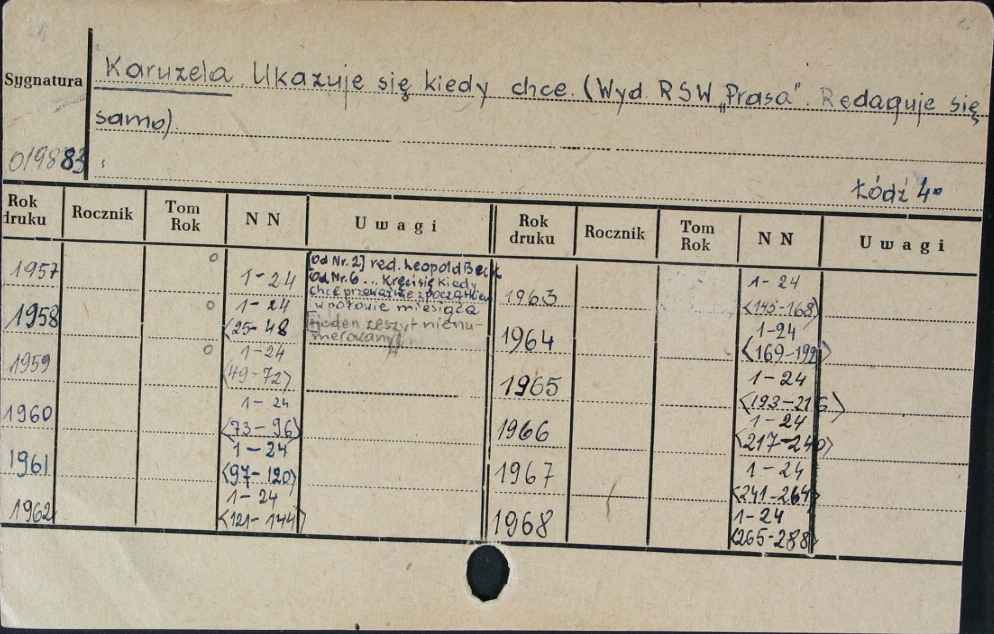 Sygnatura
Karuzela. Ukazuje się kiedy chce. (Wyd RSW „Prasa”. Redaguje się
samo).
019883
Łódź 4°
Rok druku Rocznik Tom Rok N N Uwagi Rok druku Rocznik Tom Rok N N Uwagi
1957 1-24 [Od Nr. 2] red. Leopold Beck
[Od Nr. 6 ... Kręci się kiedy
chce przeważnie z początkiem
w połowie miesiąca
[jeden zeszyt nienu-
merowany]
1958 1-24
<25-48
1959 1-24
<49-72>
1960 1-24
<73-96>
1961 1-24
<97-120>
1962 1-24
<121-144>
1963 1-24
<145-168>
1964 1-24
<169-192>
1965 1-24
<193-216>
1966 1-24
<217-240>
1967 1-24
<241-264>
1968 1-24
<265-288>